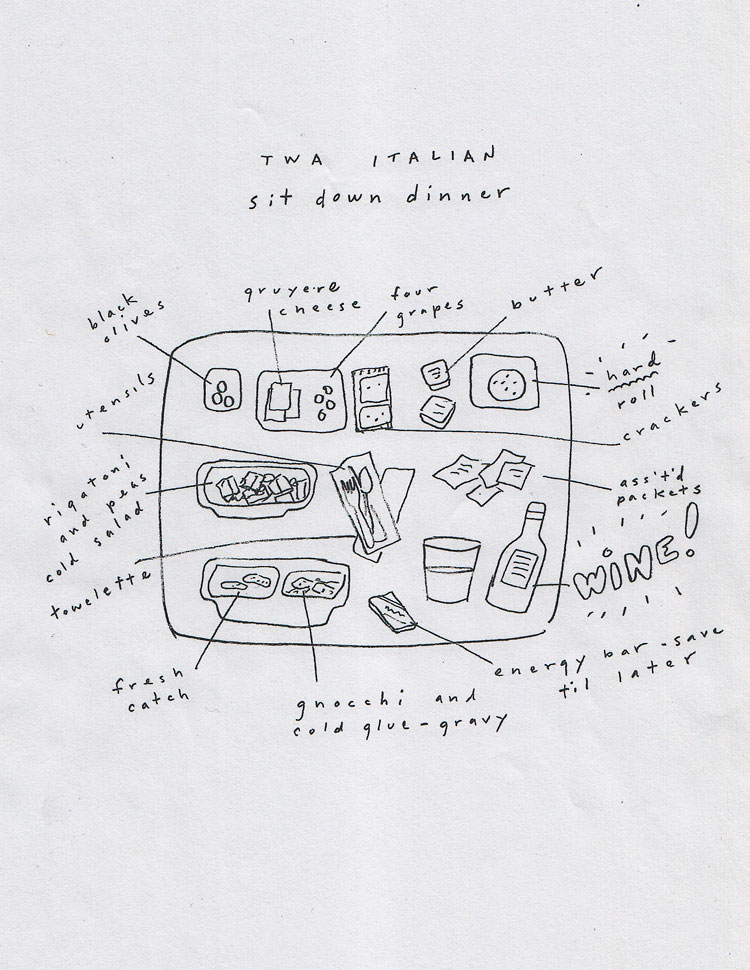 TWA ITALIAN
sit down dinner
black
olives
gruyere
cheese
four
grapes
butter
hard
roll
utensils
crackers
rigatoni
and peas
cold salad
ass't'd
packets
towelette
WINE!
fresh
catch
gnocchi and
cold glue-gravy
energy bar-save
til later